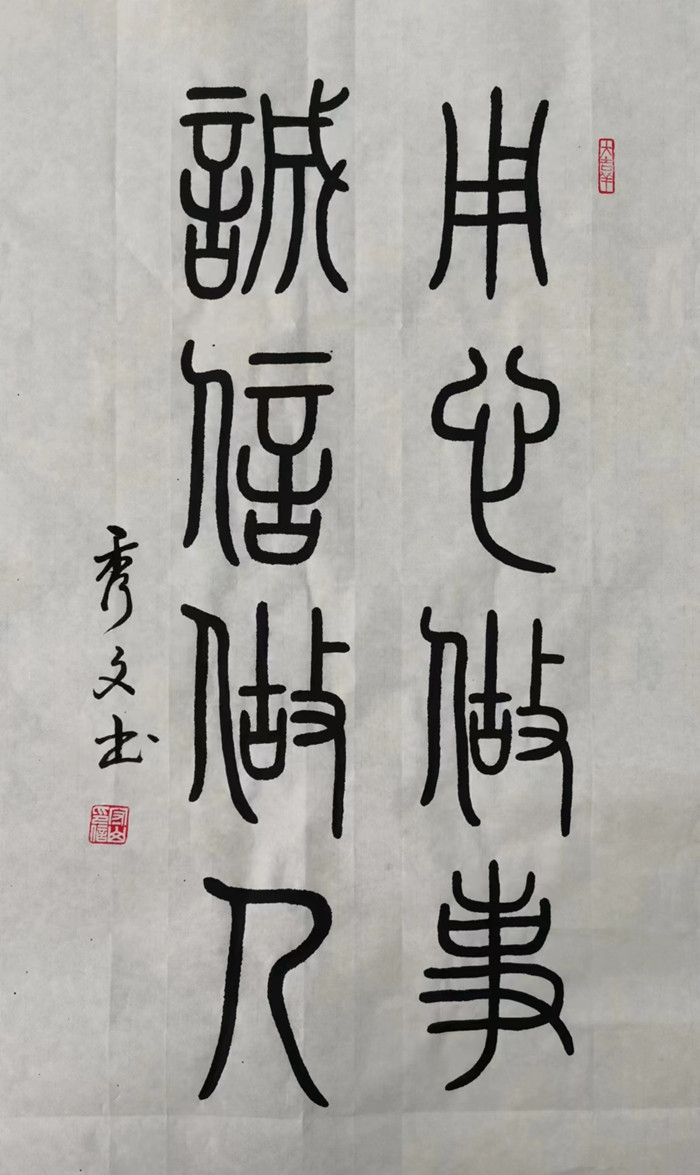 用心做事
誠信做人
秀文书